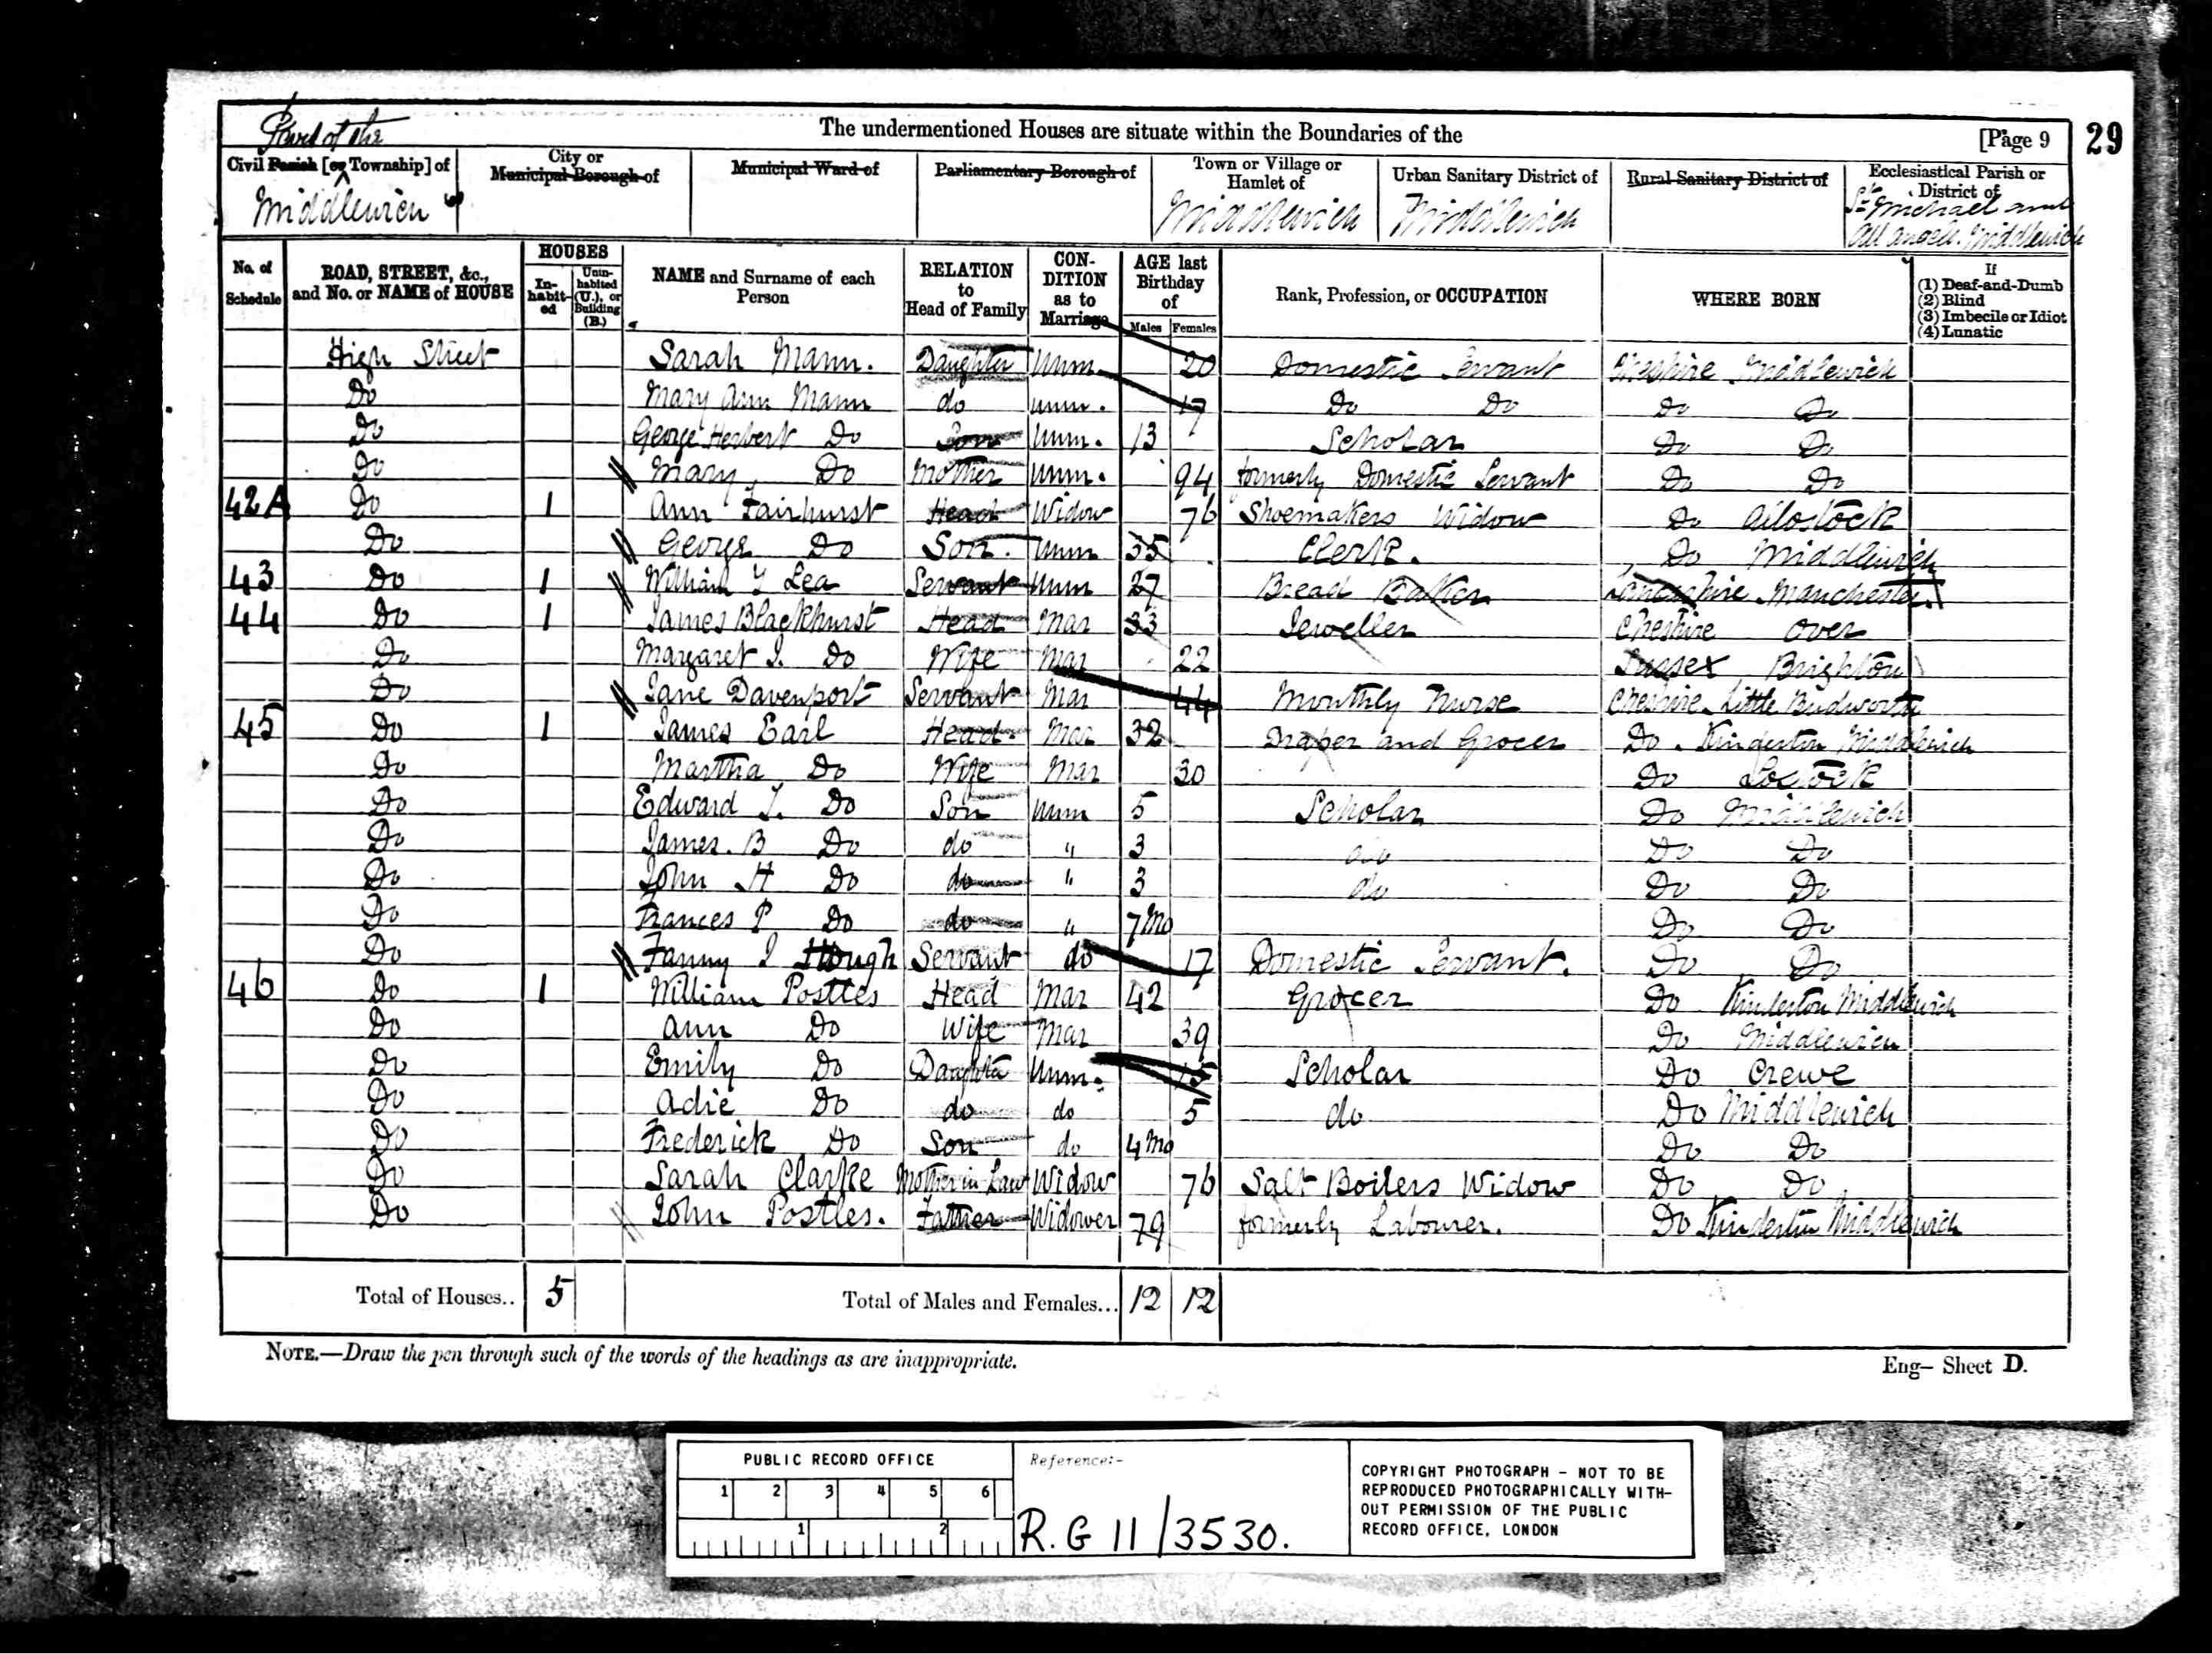 Part of the
The undermentioned Houses are situate within the Boundaries of the
[Page 9
29
Civil Parish [or Township] of
City or Municipal Borough of
Municipal Ward of
Parliamentary Borough of
Town or Village or Hamlet of
Urban Sanitary District of
Rural Sanitary District of
Ecclesiastical Parish or District of
Middlewich
Middlewich
Middlewich
St Michael and
All Angels. Middlewich
No. of Schedule
ROAD, STREET, &c., and No. or NAME of HOUSE
HOUSES
In-habit-ed
Unin-habited (U.), or Building (B.)
NAME and Surname of each Person
RELATION to Head of Family
CON-DITION as to Marriage
AGE last Birthday of
Males
Females
Rank, Profession, or OCCUPATION
WHERE BORN
If
(1) Deaf-and-Dumb
(2) Blind
(3) Imbecile or Idiot
(4) Lunatic
High Street Sarah Mann. Daughter Unm. 20 Domestic Servant Cheshire Middlewich
Do Mary Ann Mann do unm. 17 Do Do Do Do
Do George Herbert Do Son Unm. 13 Scholar Do Do
Do Mary Do Mother Unm. 94 formerly Domestic Servant Do Do
42A Do 1 Ann Fairhurst Head Widow 76 Shoemakers Widow Do Allostock
Do George Do Son. Unm 35 Clerk. Do Middlewich
43 Do 1 William Y Lea Servant Unm 27 Bread Baker Lancashire Manchester
44 Do 1 James Blackhurst Head Mar 33 Jeweller Cheshire Over
Do Margaret J. Do Wife Mar 22 Sussex Brighton
Do Jane Davenport Servant Mar 44 Monthly Nurse Cheshire Little Budworth
45 Do 1 James Earl Head. Mar 32 Draper and Grocer Do. Kinderton Middlewich
Do Martha Do Wife Mar 30 Do Lostock
Do Edward J. Do Son Unm 5 Scholar Do Middlewich
Do James. B Do do " 3 do Do Do
Do John H Do do " 3 do Do Do
Do Frances P Do do " 7 Mo Do Do
Do Fanny J Hough Servant do 17 Domestic Servant. Do Do
46 Do 1 William Postles Head Mar 42 Grocer Do Kinderton Middlewich
Do Ann Do Wife Mar 39 Do Middlewich
Do Emily Do Daughter Unm. 15 Scholar Do Crewe
Do Adie Do do do 5 do Do Middlewich
Do Frederick Do Son do 4 Mo Do Do
Do Sarah Clarke Mother in Law Widow 76 Salt Boilers Widow Do Do
Do John Postles. Father Widower 79 formerly Labourer. Do Kinderton Middlewich
Total of Houses.. 5
Total of Males and Females... 12 12
NOTE.—Draw the pen through such of the words of the headings as are inappropriate.
Eng— Sheet D.
PUBLIC RECORD OFFICE
1 2 3 4 5 6
1 2
Reference:-
R.G 11/3530.
COPYRIGHT PHOTOGRAPH - NOT TO BE
REPRODUCED PHOTOGRAPHICALLY WITH-
OUT PERMISSION OF THE PUBLIC
RECORD OFFICE, LONDON